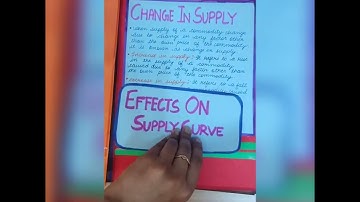 CHANGE IN SUPPLY
• When supply of a commodity change
due to change in any factor other
than the own price of the commodity
it is known as change in supply
• Increase in supply : It refers to a rise
in the supply of a commodity
caused due to any factor other than
the own price of the commodity.
Decrease in supply : It refers to a fall
EFFECTS ON
SUPPLY CURVE